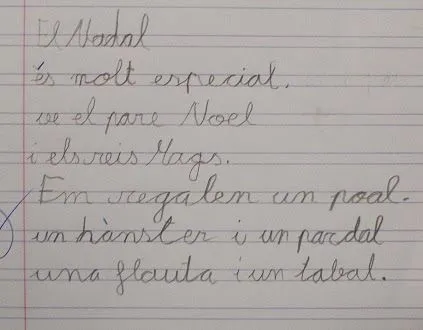 El Nadal
és molt especial.
ve el pare Noel
i els reis Mags.
Em regalen un poal.
un hànster i un pardal
una flauta i un tabal.